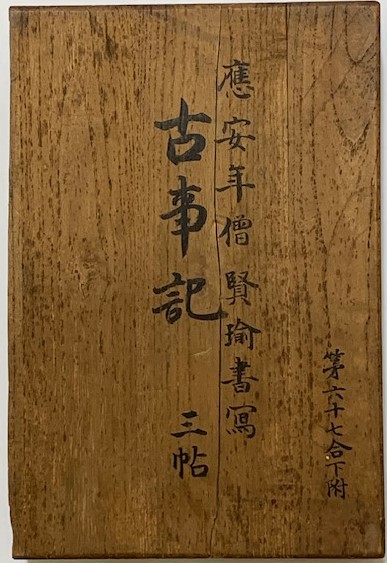 第六十七合下附
應安年僧賢瑜書寫
古事記 三帖